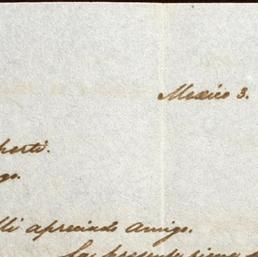 Mexico 3.
perti.
go.
Mi apreciado amigo.
Las presente